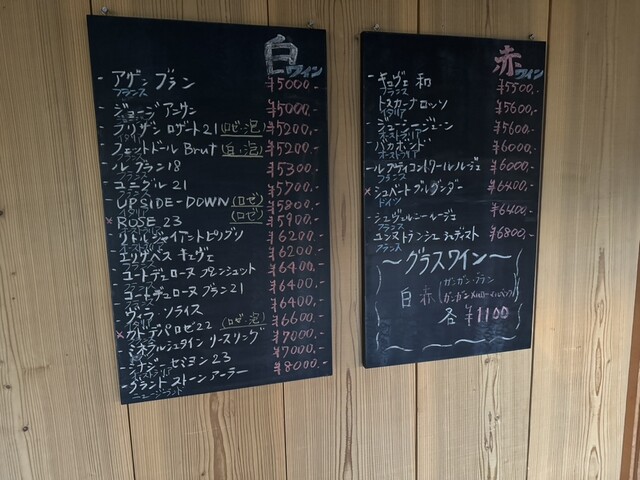 白ワイン
アゲン ブラン ¥5000.-
フランス
ジョージ アンサン ¥5000.-
フリザン ロザート21 (ロゼ・泡) ¥5200.-
フェントドール Brut (白・泡) ¥5200.-
ル・ブラン18 ¥5300.-
ユニグル21 ¥5700.-
UPSIDE-DOWN (ロゼ) ¥5800.-
ROSE 23 (ロゼ) ¥5900.-
リトルジャイアントピリプソ ¥6200.-
エリザベス キュヴェ ¥6200.-
コートデュローヌ ¥6400.-
コートデュローヌ ブラン21 ¥6400.-
ヴィラ・ソライス ¥6400.-
×カトデパロゼ22 (ロゼ・泡) ¥6600.-
リースリング ¥7000.-
セミヨン23 ¥7000.-
グランド ストーン アーラー ¥8000.-
ニュージーランド
赤ワイン
キュヴェ 和 ¥5500.-
フランス
トスカーナロッソ ¥5600.-
イタリア
ジューシージューン ¥5600.-
オーストラリア
バカボンド ¥6000.-
オーストラリア
ルプティコントワールルージュ ¥6000.-
フランス
×シュペートブルグンダー ¥6400.-
ドイツ
シュヴェルニールージュ ¥6400.-
フランス
ユンヌトランシュ ¥6800.-
フランス
〜グラスワイン〜
白 赤 (ガンガン・ブラン
各 ¥1100